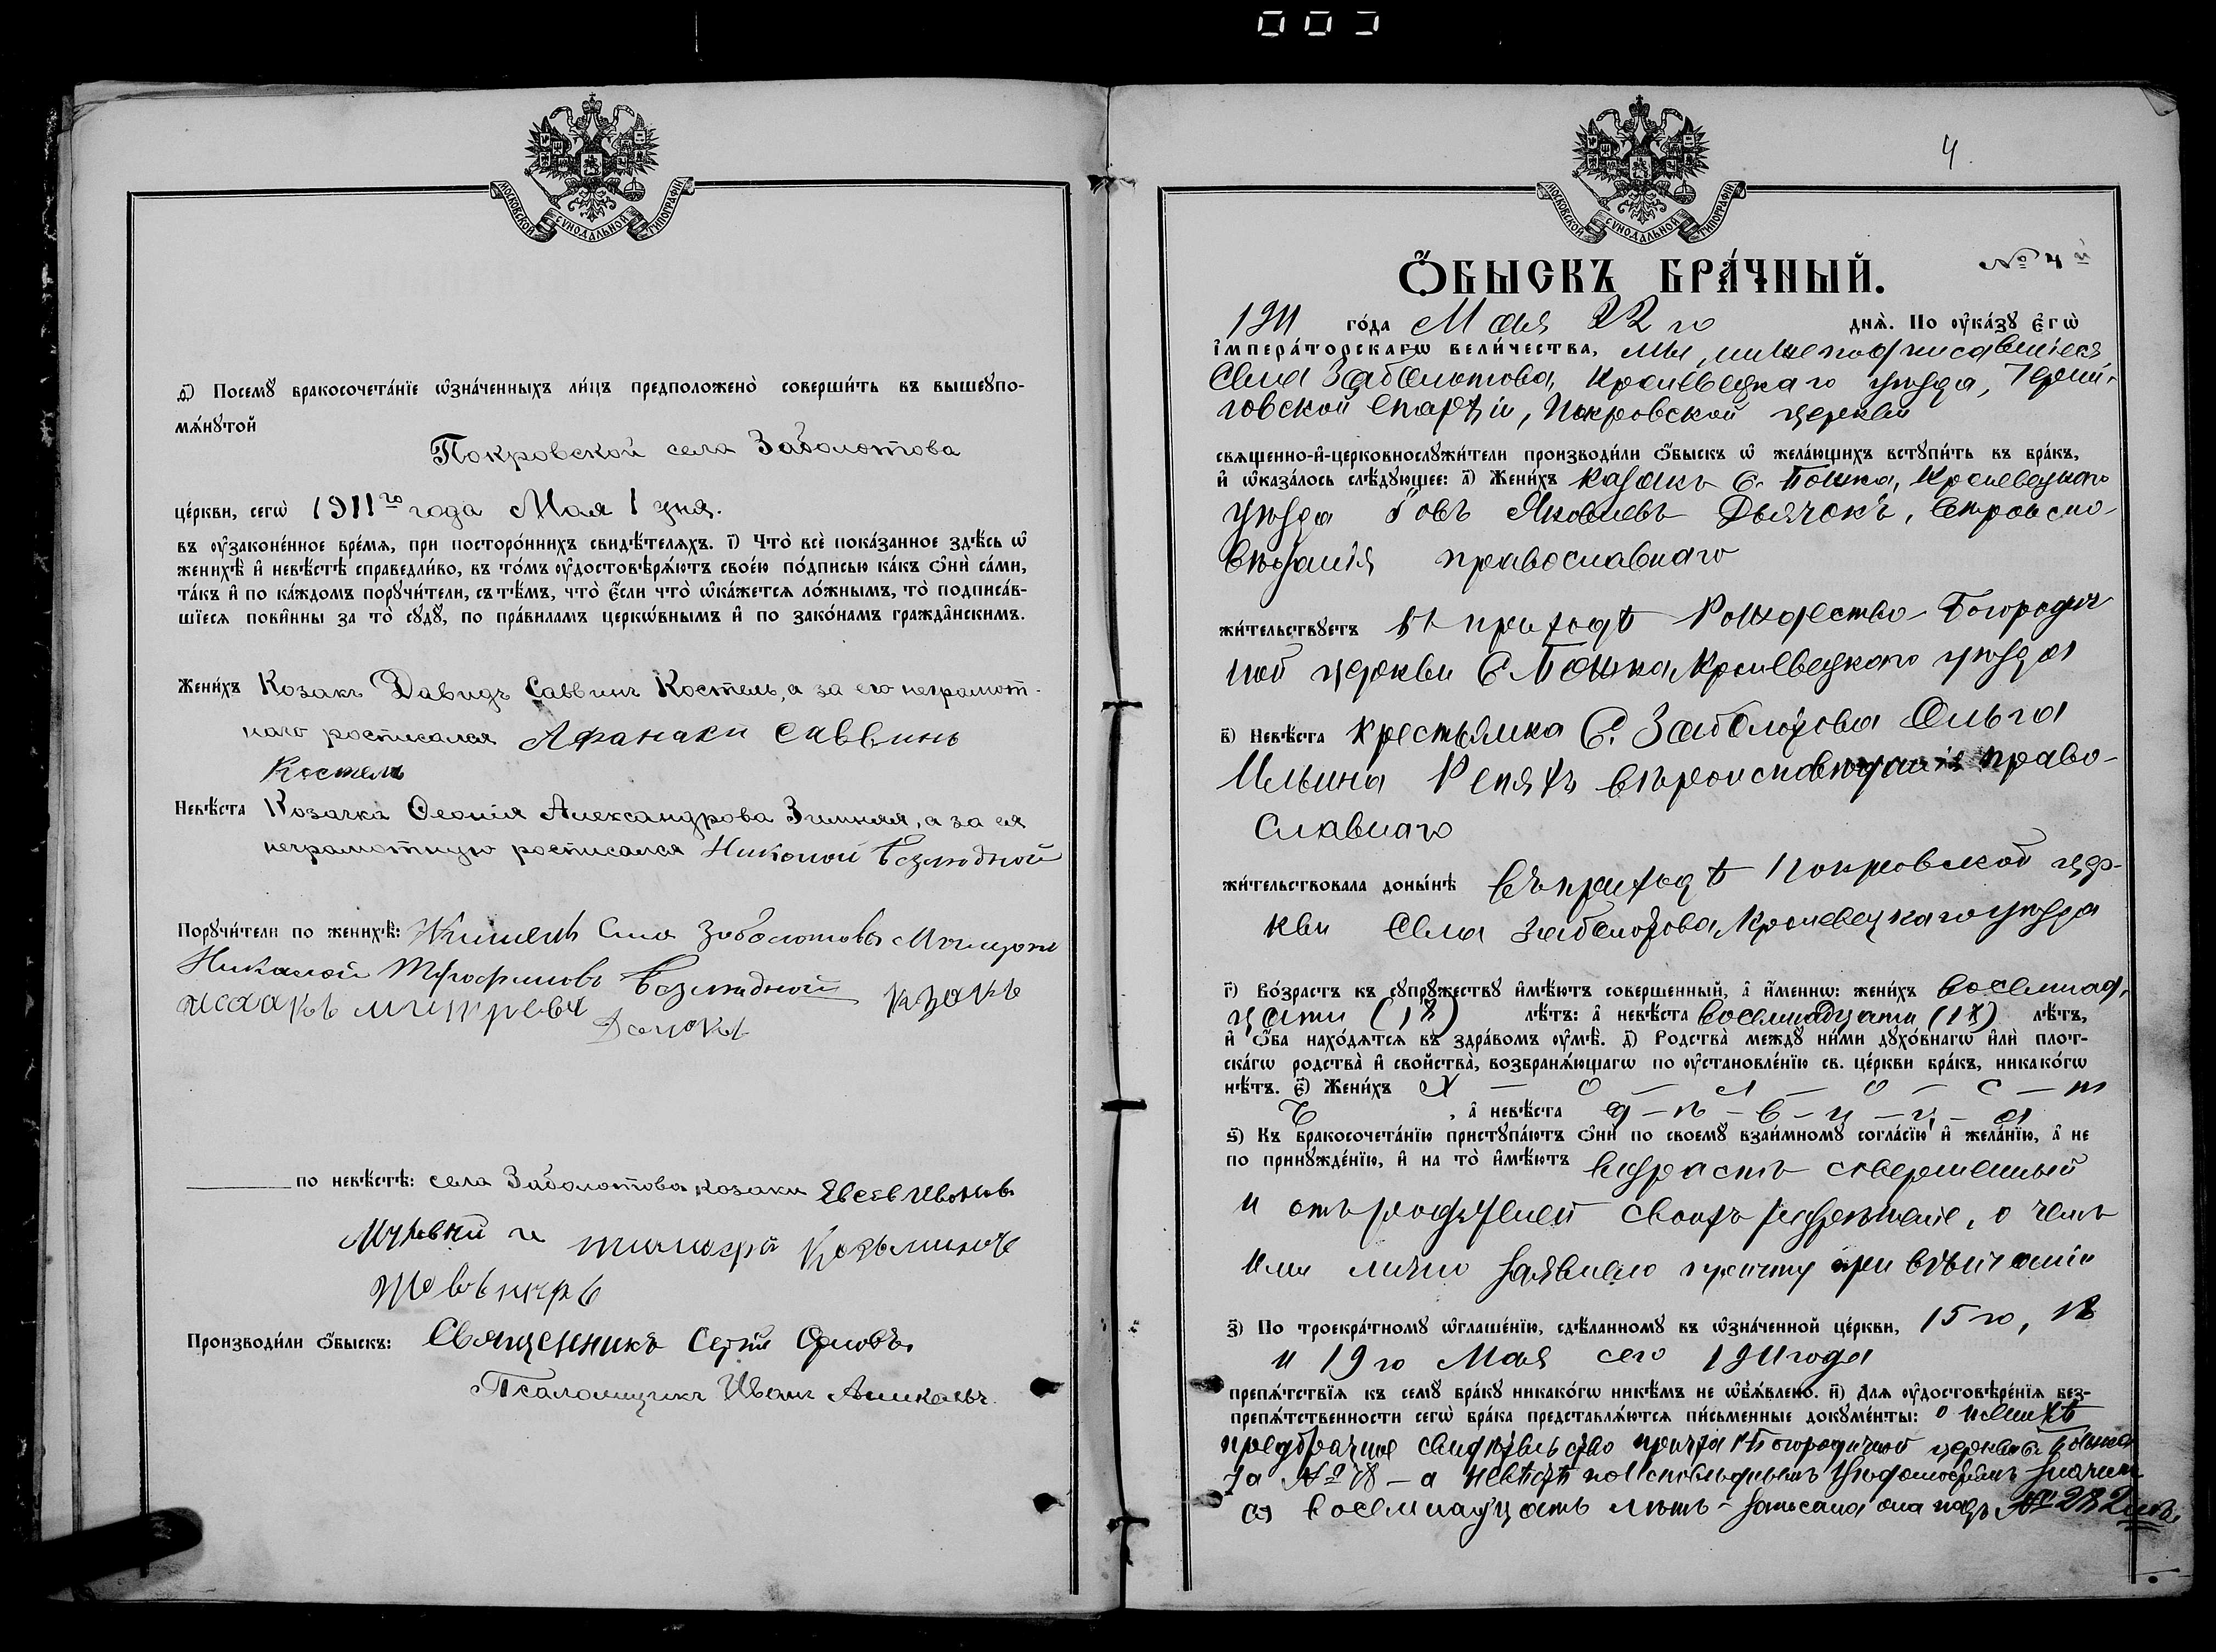 МОСКОВСКОЙ СѴНОДАЛЬНОЙ ТИПОГРАФІИ
д҃) Посемꙋ̀ бракосочета́нїе ѡ҆зна́ченныхъ ли́цъ предположено̀ соверши́ть въ вышеꙋпо-
мѧ́нꙋтой
Покровской села Заболотова
це́ркви, сегѡ̀ 1911го года Мая 1 дня.
въ ᲂу҆законе́нное вре́мѧ, при посторо́ннихъ свидѣ́телѧхъ. і҃) Что̀ всѐ пока́занное здѣ́сь ѡ҆
женихѣ̀ и҆ невѣ́стѣ справедли́во, въ то́мъ ᲂу҆достовѣрѧ́ютъ свое́ю по́дписью ка́къ ѻ҆нѝ са́ми,
та́къ и҆ по ка́ждомъ порꙋчи́тели, съ тѣ́мъ, что̀ є҆́сли что̀ ѡ҆ка́жетсѧ ло́жнымъ, то̀ подписа́в-
шїесѧ пови́нны за то̀ сꙋдꙋ̀, по пра́виламъ церкѡ́внымъ и҆ по зако́намъ гражда́нскимъ.
Жени́хъ Козакъ Давидъ Саввинъ Костель, а за его неграмот-
наго росписался Афанаси Саввинъ
Костель
Невѣ́ста Козачка Ѳеонія Александрова Зимняя, а за ея
неграмотную росписался Николай Безлюдной
Порꙋчи́тели по женихѣ̀: Жители Села Заболотова
Николай Трофимовъ Безлюдной
козакъ
по невѣ́стѣ: села Заболотова козаки Евсей Ивановъ
и Тимофей Козьминъ
Производи́ли ѻ҆́быскъ: Священникъ Сергій Орловъ.
Псаломщикъ Иванъ
МОСКОВСКОЙ СѴНОДАЛЬНОЙ ТИПОГРАФІИ
4.
№ 4й
Ѻ҆́БЫСКЪ БРА́ЧНЫЙ.
1911 го́да Мая 22го днѧ̀. По ᲂу҆ка́зꙋ є҆гѡ̀
і҆мпера́торскагѡ вели́чества, мы, нижеподписавшіеся,
Села Заболотова, Кролевецкаго уѣзда, Черни-
говской епархіи, Покровской церкви
свѧщенно-и҆-церковнослꙋжи́тели производи́ли ѻ҆́быскъ ѡ҆ жела́ющихъ встꙋпи́ть въ бра́къ,
и҆ ѡ҆каза́лось слѣ́дꙋющее: а҃) Жени́хъ казакъ с. Тонка, Кролевецкаго
уѣзда Іовъ Яковлевъ Дьячокъ, вѣроиспо-
вѣданія православнаго
жи́тельствꙋетъ въ приходѣ Рождество-Богородич
ной церкви с. Кролевецкаго уѣзда
в҃) Невѣ́ста крестьянка с. Заболотова Ольга
Ильина Репяхъ вѣроисповѣданія право-
славнаго
жи́тельствовала доны́нѣ въ приходѣ Покровской цер-
кви Села Заболотова Кролевецкаго уѣзда
г҃) Во́зрастъ къ сꙋпрꙋ́жествꙋ и҆мѣ́ютъ соверше́нный, а҆ и҆́меннѡ: жени́хъ восемнад-
цати (18) лѣ́тъ: а҆ невѣ́ста восемнадцати (18) лѣ́тъ,
и҆ ѻ҆́ба нахо́дѧтсѧ въ здра́вомъ ᲂу҆мѣ̀. д҃) Родства̀ междꙋ̀ ни́ми дꙋхо́внагѡ и҆лѝ плот-
ска́гѡ родства̀ и҆ свойства̀, возбранѧ́ющагѡ по ᲂу҆становле́нїю св. це́ркви бра́къ, никако́гѡ
нѣ́тъ. є҃) Жени́хъ Х — о — л — о — с — т
ъ , а҆ невѣ́ста д — ѣ — в — и — ц — а
ѕ҃) Къ бракосочета́нїю пристꙋпа́ютъ ѻ҆нѝ по своемꙋ̀ взаи́мномꙋ согла́сїю и҆ жела́нїю, а҆ не
по принꙋжде́нїю, и҆ на то̀ и҆мѣ́ютъ возрастъ совершенный
и отъ родителей своихъ разрѣшеніе, о чемъ
ими лично заявлено причту при вѣнчаніи
з҃) По троекра́тномꙋ ѡ҆глаше́нїю, сдѣ́ланномꙋ въ ѡ҆зна́ченной це́ркви, 15го, 18
и 19го Мая сего 1911 года
препѧ́тствїѧ къ семꙋ̀ бра́кꙋ никако́гѡ никѣ́мъ не ѡ҆б̾ѧ́влено. и҃) Длѧ ᲂу҆достовѣре́нїѧ без-
препѧ́тственности сегѡ̀ бра́ка представлѧ́ютсѧ пи́сьменные докꙋме́нты: о женихѣ
предбрачное свидѣтельство причта Р. Богородичной церкви с.
за № 78 — а невѣстѣ по исповѣднымъ вѣдомостямъ значит
ся восемнадцать лѣтъ — записана она подъ № 282